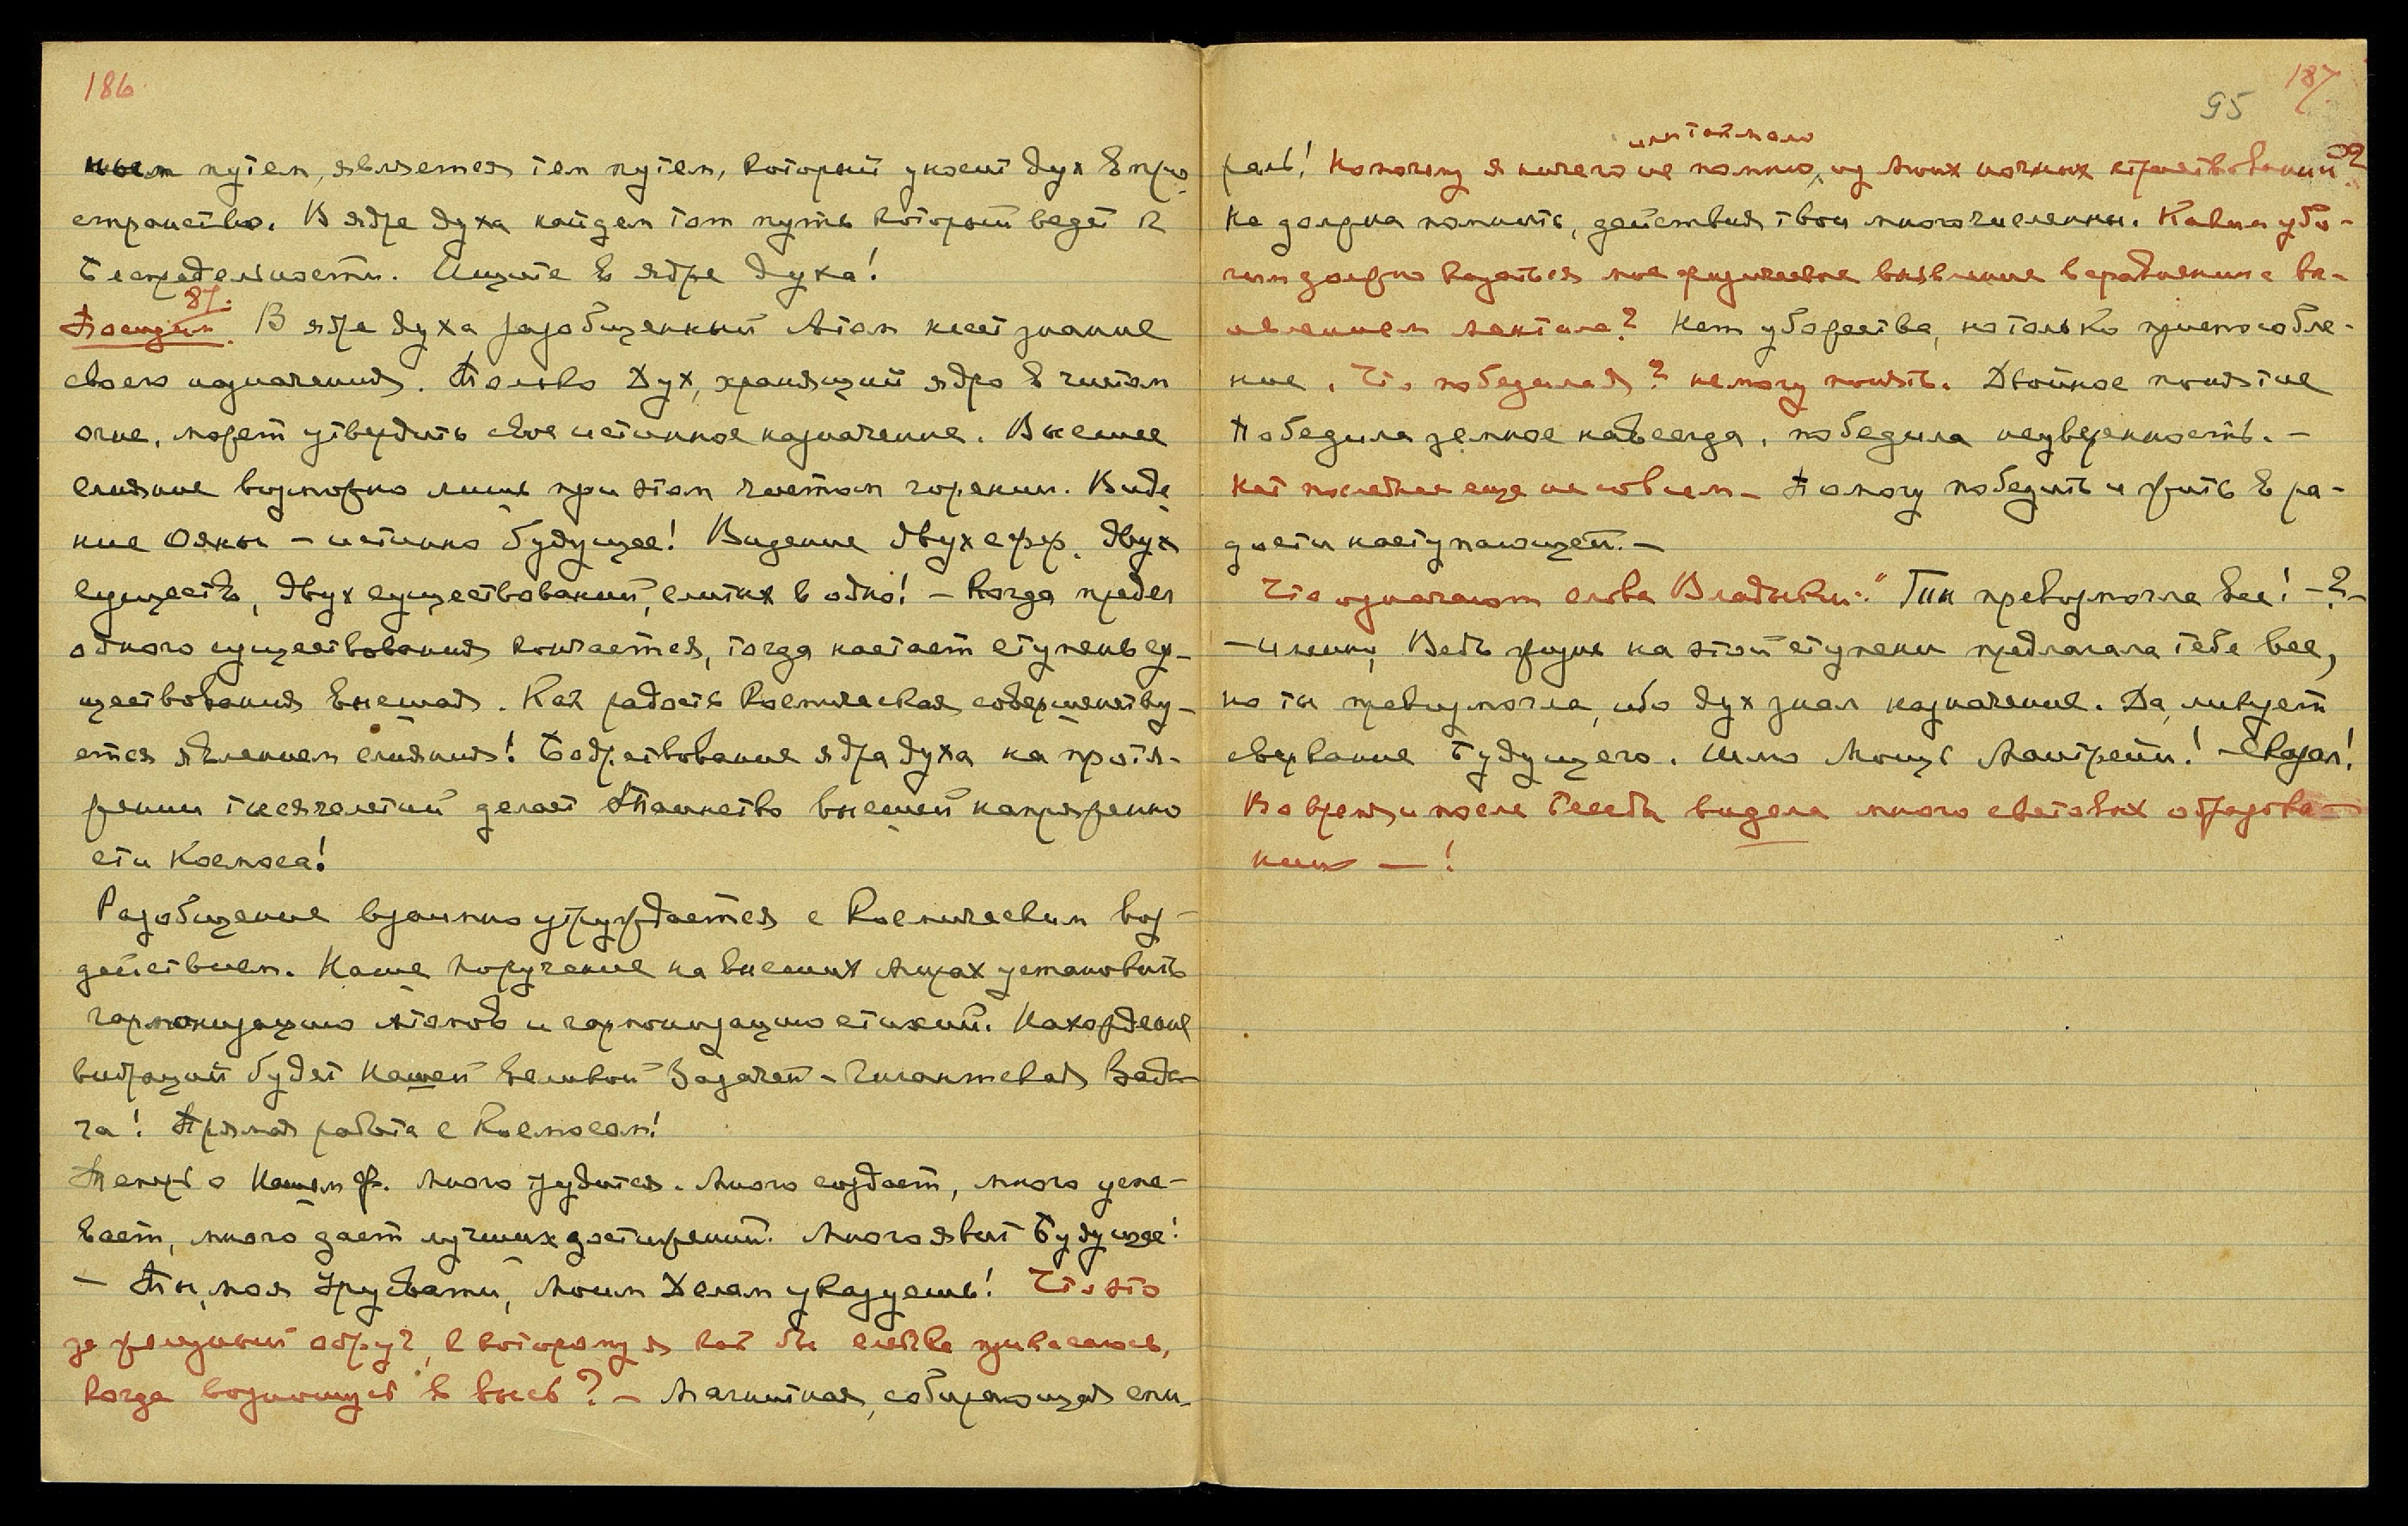 186
ным путем, является тем путем, который уносит дух в про-
странство. В ядре духа найдем тот путь который ведет к
Беспредельности. Ищите в ядре духа!
87.
В ядре духа разобщенный Атом несет знание
своего назначения. Только Дух, хранящий ядро в чистом
огне, может утвердить свое истинное назначение. Высшее
слияние возможно лишь при этом чистом горении. Виде-
ние Ояны – истинно будущее! Видение двух сфер, двух
существ, двух существований, слитых в одно! – Когда предел
одного существования кончается, тогда настает ступень су-
ществования высшая. Как радость космическая совершенству-
ется явлением слияния! Бодрствование ядра духа на протя-
жении тысячелетий делает Таинство высшей напряженно
сти Космоса!
Разобщение взаимно утруждается с Космическим воз-
действием. Наше поручение на высших Мирах установить
гармонизацию атомов и гармонизацию стихий. Нахождение
вибраций будет Нашей великой Задачей – Гигантская Зада-
ча! Прямая работа с Космосом!
Теперь о Нашем Ф. Много трудится. Много создает, много успе-
вает, много дает лучших достижений. Много явит Будущее!
– Ты, моя Урусвати, Моим Челам указуешь! Что это
за железный обруч, к которому я как бы слегка прикасаюсь,
когда возношусь в высь? – Магнитная, собирающая спи-
187
95
раль! Но почему я ничего не помню из моих ночных странствований?
или так мало
Не должна помнить, действия твои многочисленны. Каким убо-
гим должно казаться мое физическое выявление в сравнении с вы-
явлением ментала? Нет убожества, но только приспособле-
ние. Что победила я? не могу понять. Двойное понятие
Победила земное навсегда, победила неуверенность. –
Нет последнее еще не совсем – Помогу победить и жить в ра-
дости наступающей. –
Что означают слова Владыки: "Так превозмогла все! – ? –
– Именно, Ведь жизнь на этой ступени предлагала тебе все,
но ты превозмогла, ибо дух знал назначение. Да, ликует
сверкание Будущего. Шлю Мощь Майтрейи! – Сказал!
Во время и после Беседы видела много световых образова-
ний — !